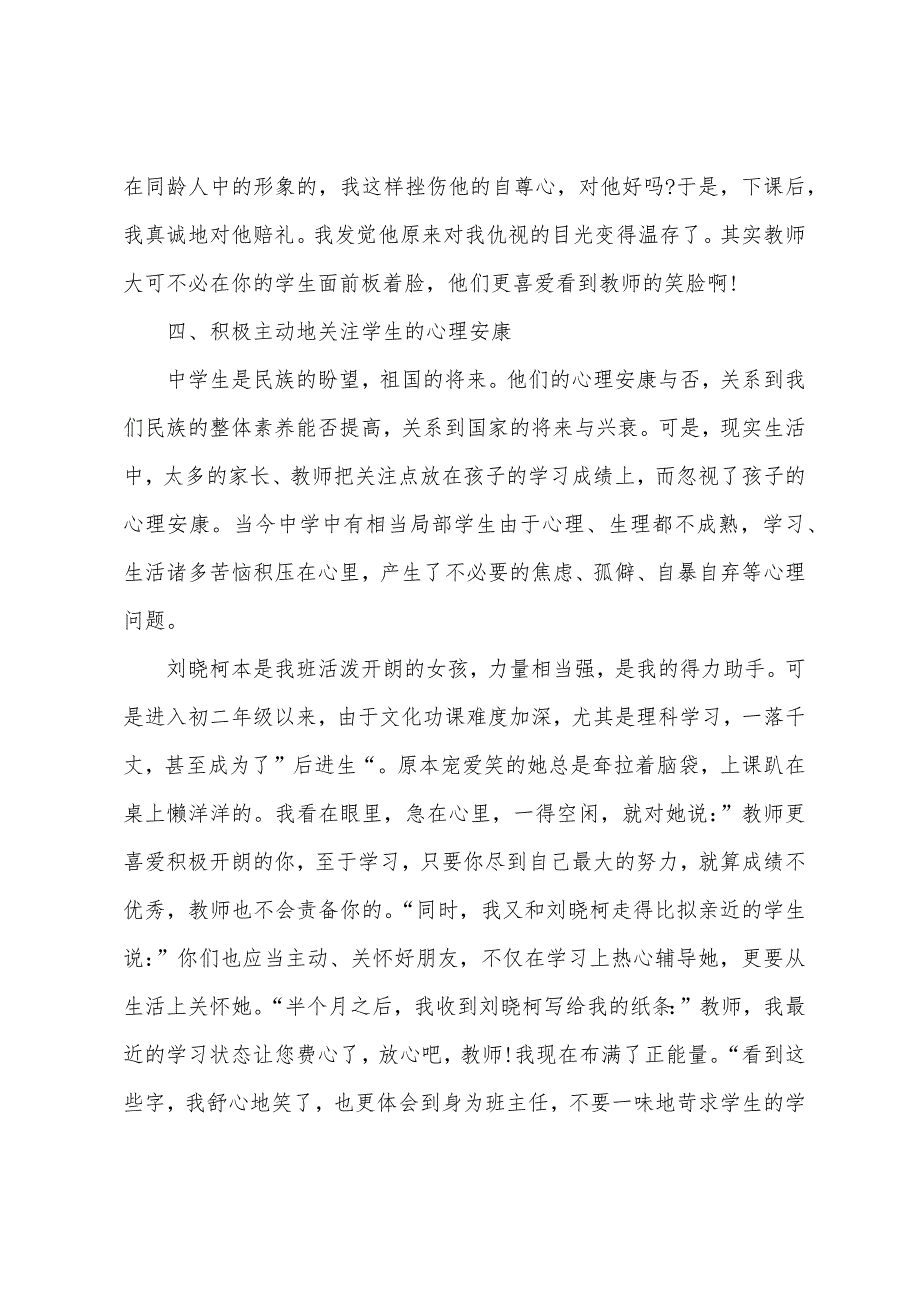 在同龄人中的形象的，我这样挫伤他的自尊心，对他好吗?于是，下课后，
我真诚地对他赔礼。我发觉他原来对我仇视的目光变得温存了。其实教师
大可不必在你的学生面前板着脸，他们更喜爱看到教师的笑脸啊!
四、积极主动地关注学生的心理安康
中学生是民族的盼望，祖国的将来。他们的心理安康与否，关系到我
们民族的整体素养能否提高，关系到国家的将来与兴衰。可是，现实生活
中，太多的家长、教师把关注点放在孩子的学习成绩上，而忽视了孩子的
心理安康。当今中学中有相当局部学生由于心理、生理都不成熟，学习、
生活诸多苦恼积压在心里，产生了不必要的焦虑、孤僻、自暴自弃等心理
问题。
刘晓柯本是我班活泼开朗的女孩，力量相当强，是我的得力助手。可
是进入初二年级以来，由于文化功课难度加深，尤其是理科学习，一落千
文，甚至成为了”后进生“。原本宠爱笑的她总是耷拉着脑袋，上课趴在
桌上懒洋洋的。我看在眼里，急在心里，一得空闲，就对她说：”教师更
喜爱积极开朗的你，至于学习，只要你尽到自己最大的努力，就算成绩不
优秀，教师也不会责备你的。“同时，我又和刘晓柯走得比拟亲近的学生
说：”你们也应当主动、关怀好朋友，不仅在学习上热心辅导她，更要从
生活上关怀她。“半个月之后，我收到刘晓柯写给我的纸条：”教师，我最
近的学习状态让您费心了，放心吧，教师!我现在布满了正能量。“看到这
些字，我舒心地笑了，也更体会到身为班主任，不要一味地苛求学生的学